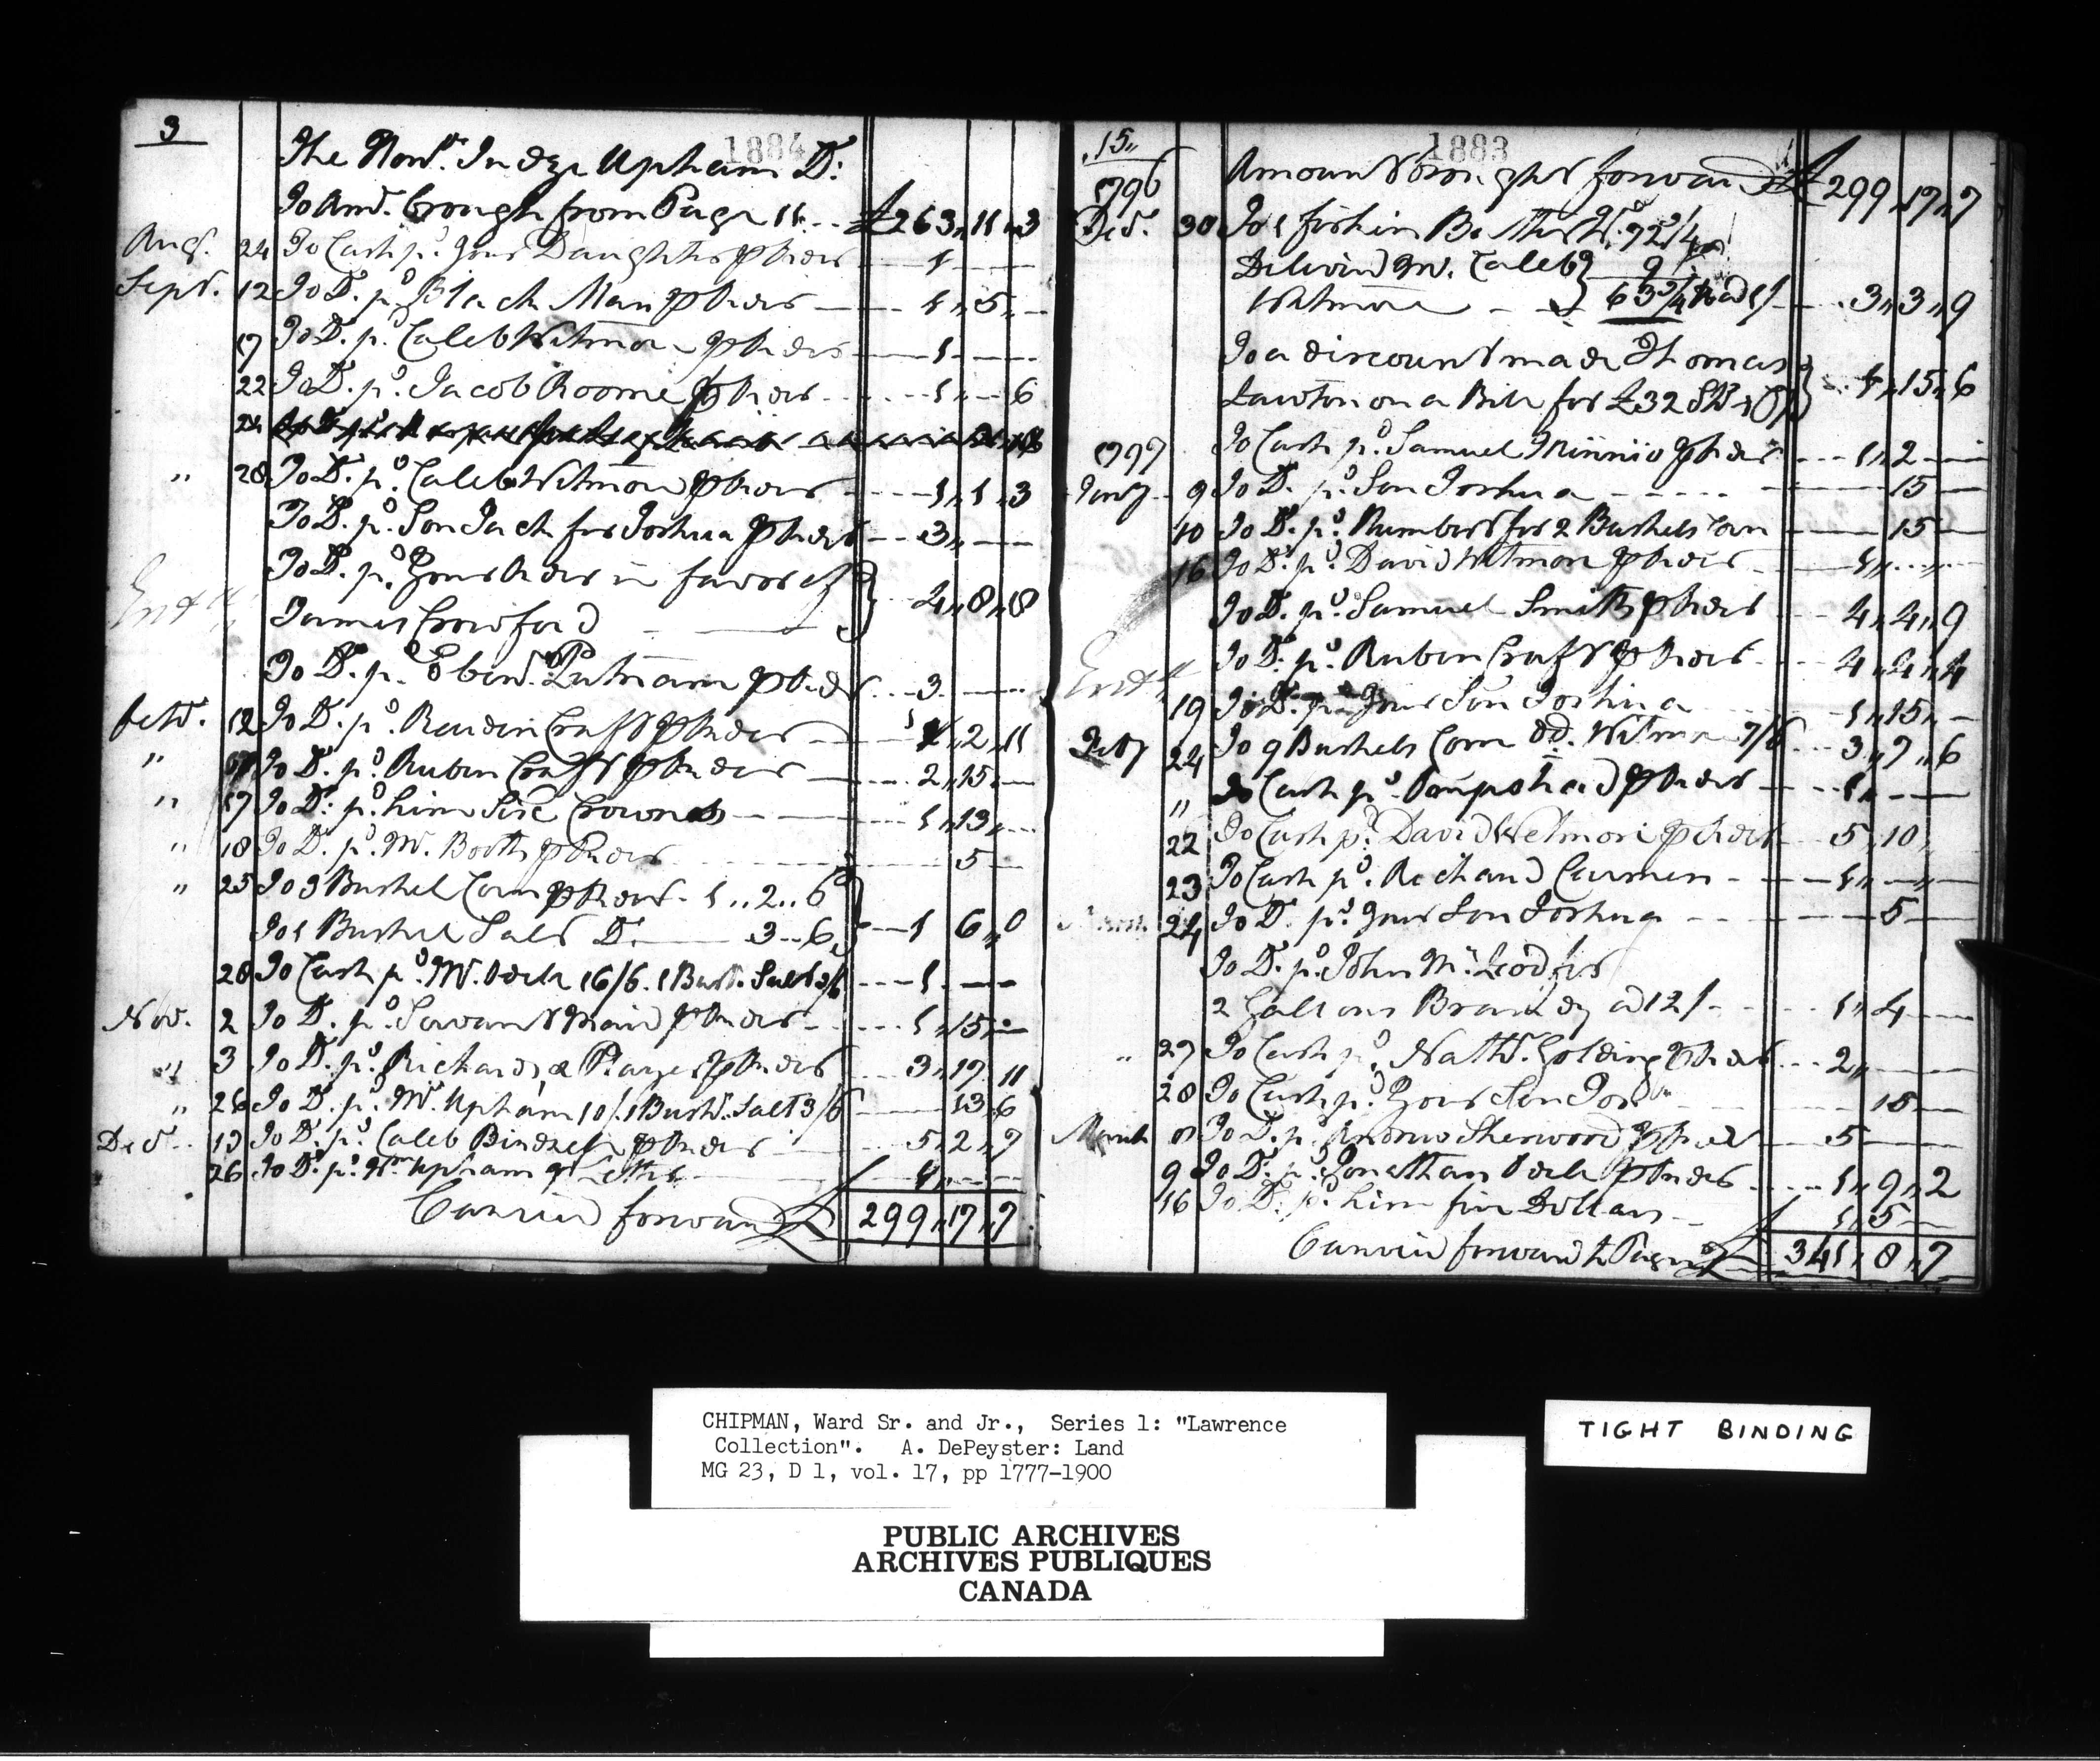 3
1884
The Honl. Judge Upham Dr.
To Amt. brought from Page 11 £263,, 11,, 3
Augt. 24 To Cash pd. your Daughter p Order 1
Sept. 12 To Do. pd. Black Man p Order 1,, 5,,
17 To Do. pd. Caleb Wetmore p Order 1
22 To Do. pd. Jacob Roome p Order 1,, 6
24
,, 28 To Do. pd. Caleb Wetmore p Order 1,, 1,, 3
To Do. pd. Son Jack for Joshua p Order 3,,
To Do. pd. Your Order in favor of
James Crawford 2,, 8,, 8
Entd.
To Do. pd. Ebenr. Putnam p Order 3
Octr. 12 To Do. pd. Craft p Order 2,, 11
,, 17 To Do. pd. Rubin Craft p Order 2,, 15
,, 17 To Do. pd. him Six Crowns 1,, 13
,, 18 To Do. pd. M. Booth p Order 5
,, 25 To 3 Bushel Corn p Order 1,, 2,, 6
To 1 Bushel Salt Do. 3,, 6 1 6,, 0
28 To Cash pd. M. Odell 16/6. 1 Bush. Salt 3/6 1
Nov. 2 To Do. pd. Servant Maid p Order 1,, 15
,, 3 To Do. pd. Richard & Player p Order 3,, 17 11
,, 26 To Do. pd. M. Upham 10/. 1 Bushl. Salt 3/6 13 6
Dec. 13 To Do. pd. Caleb p Order 5,, 2,, 7
26 To Do. pd. Wm. Upham p Letter 4,,
Carried forward £ 299,, 17,, 7
15,,
1883
1796 Amount brought forward £299,, 17,, 7
Decr. 30 To 1 firkin Butter Wt. 72 3/4
Deliverd M. Caleb 9
Wetmore 63 3/4 lb ad 1/ 3,, 3,, 9
To a discount made Thomas
Lawton on a Bill for £32 1,, 15,, 6
1797 To Cash pd. Samuel p Order 1,, 2
Jany. 9 To Do. pd. Son Joshua 15
10 To Do. pd. for 2 Bushels Corn 15
16 To Do. pd. David Wetmore p Order 1,,
To Do. pd. Samuel Smith p Order 4,, 4,, 9
Entd. To Do. pd. Rubin Craft p Order 4,, 2,, 4
19 To Do. pd. your Son Joshua 1,, 15,,
Feby 21 To 9 Bushels Corn 7/6 3,, 7,, 6
,, To Cash pd. p Order 1,,
22 To Cash pd. David Wetmore p Order 5,, 10
23 To Cash pd. Richard Carmen 1,,
24 To Do. pd. your Son Joshua 5
To Do. pd. John McLeod for
2 Gallons Brandy ad 12/ 1,, 4
,, 27 To Cash pd. Nathl. Golding p Order 2,,
28 To Cash pd. Your Son Josha. 15
March 8 To Do. pd. Andrew Sherwood p Order 5
9 To Do. pd. Jonathan Odell p Order 1,, 9,, 2
16 To Do. pd. him five Dollars 1,, 5
Carried forward to Page £ 341,, 8,, 7
CHIPMAN, Ward Sr. and Jr., Series 1: "Lawrence
Collection". A. DePeyster: Land
MG 23, D 1, vol. 17, pp 1777-1900
TIGHT BINDING
PUBLIC ARCHIVES
ARCHIVES PUBLIQUES
CANADA